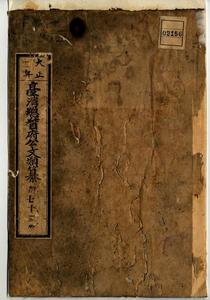 大正
一年
臺灣總督府公文類纂
02156